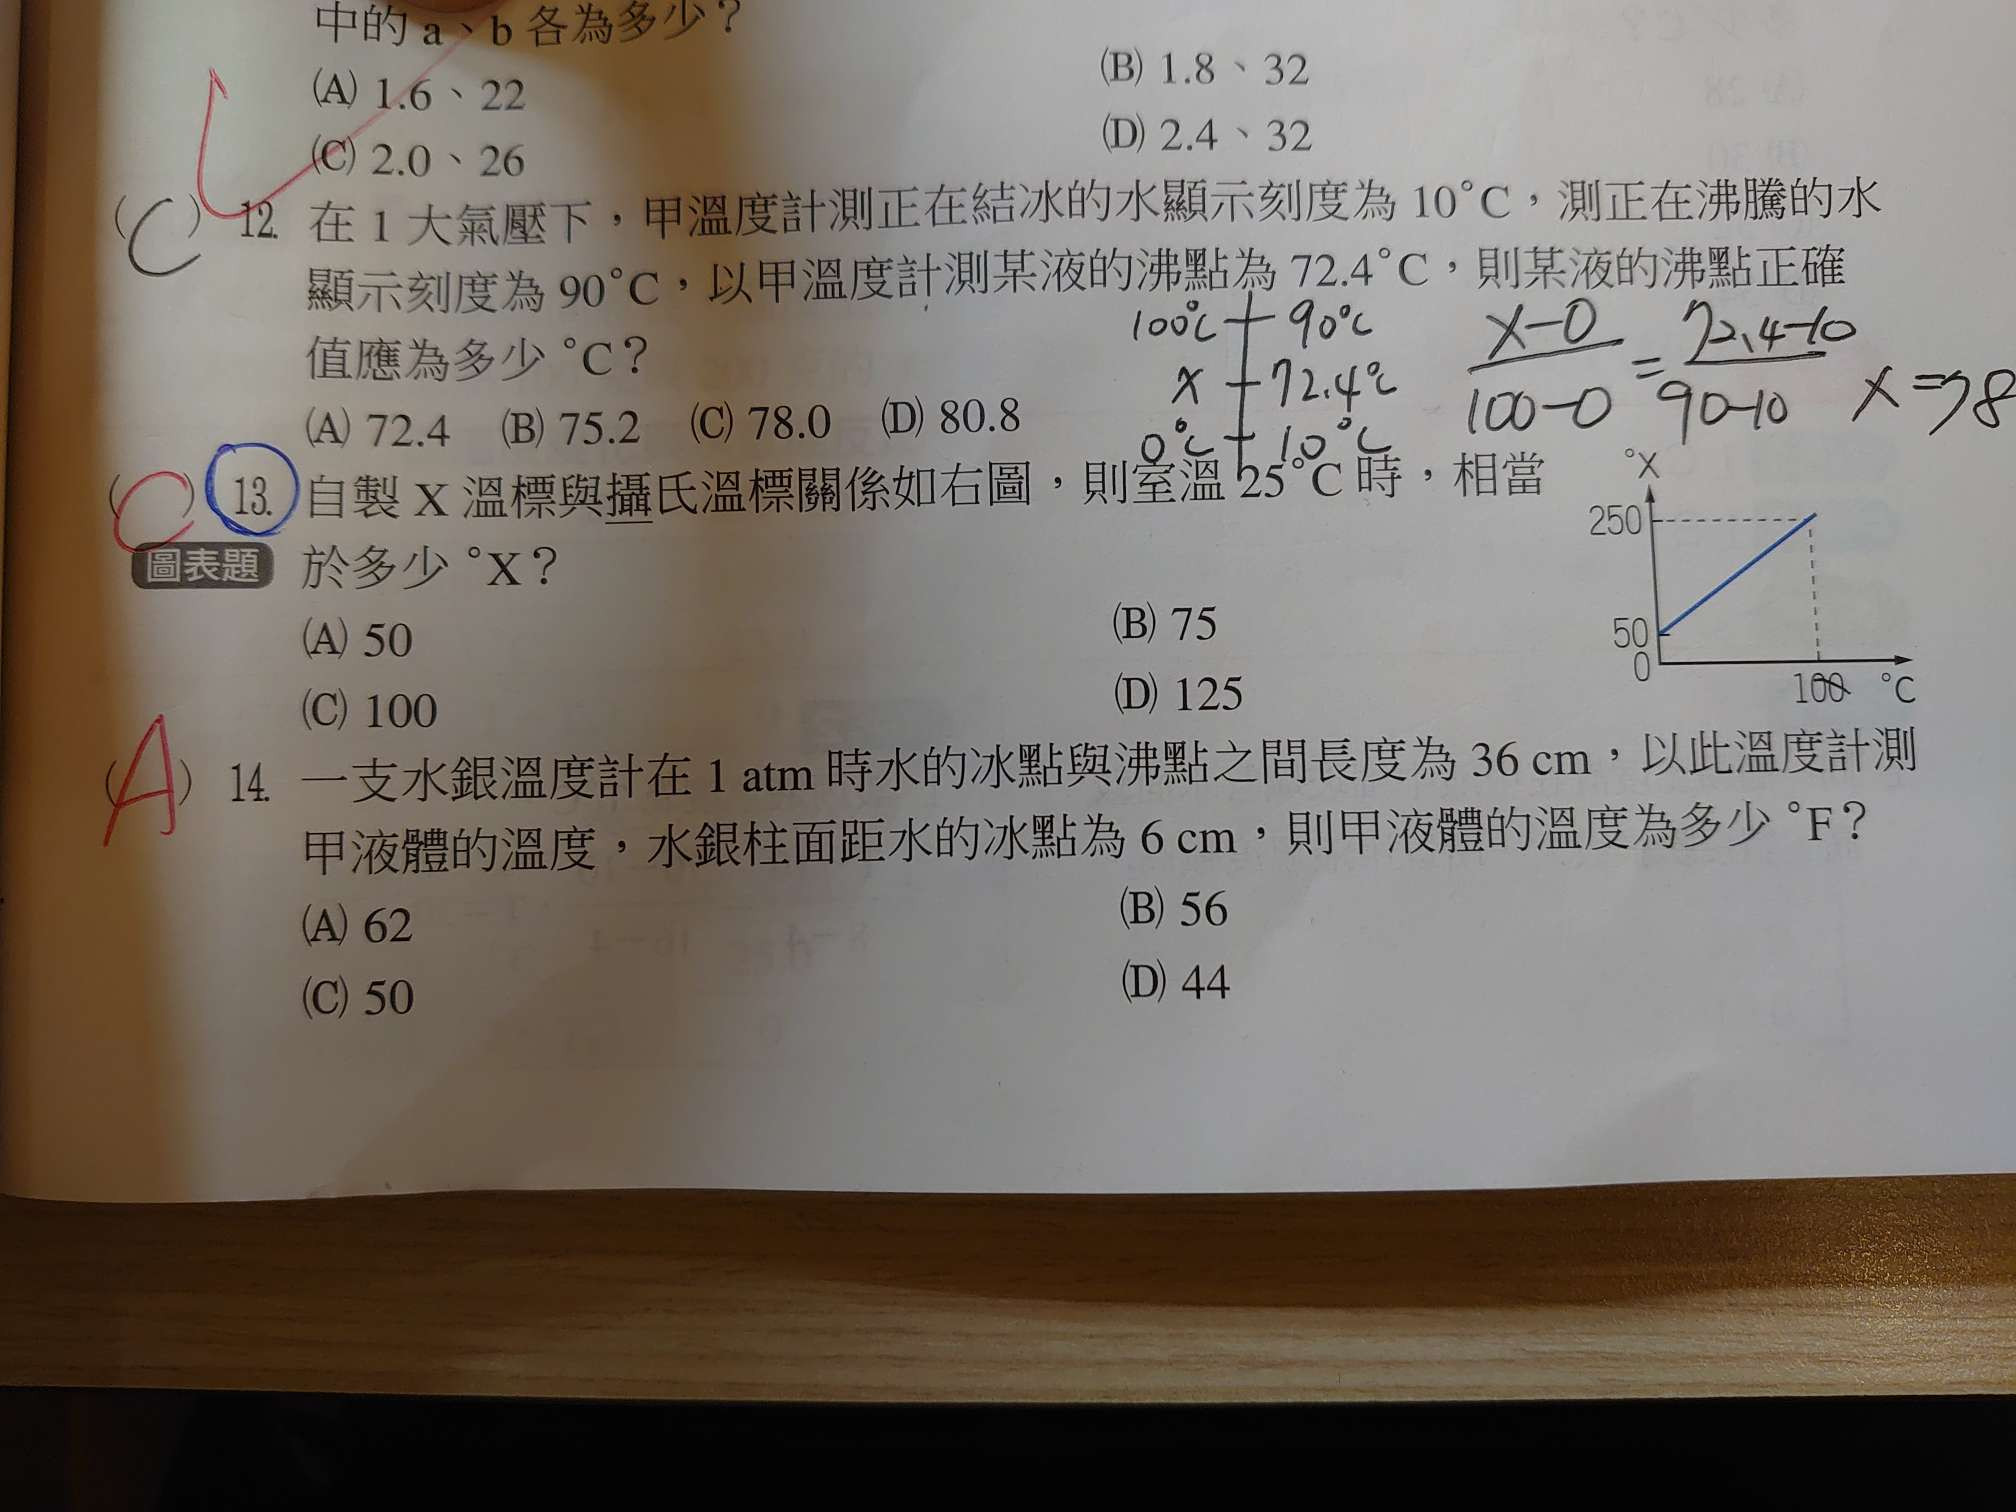 中的 a、b 各為多少？
(A) 1.6、22
(B) 1.8、32
(C) 2.0、26
(D) 2.4、32
(C) 12. 在 1 大氣壓下，甲溫度計測正在結冰的水顯示刻度為 10°C，測正在沸騰的水
顯示刻度為 90°C，以甲溫度計測某液的沸點為 72.4°C，則某液的沸點正確
值應為多少 °C？
(A) 72.4 (B) 75.2 (C) 78.0 (D) 80.8
100°C 90°C
x 72.4°C
0°C 10°C
x-0 = 72.4-10
100-0 90-10 x=78
(C) 13. 自製 X 溫標與攝氏溫標關係如右圖，則室溫 25°C 時，相當
圖表題 於多少 °X？
(A) 50
(B) 75
(C) 100
(D) 125
°X
250
50
0
100 °C
(A) 14. 一支水銀溫度計在 1 atm 時水的冰點與沸點之間長度為 36 cm，以此溫度計測
甲液體的溫度，水銀柱面距水的冰點為 6 cm，則甲液體的溫度為多少 °F？
(A) 62
(B) 56
(C) 50
(D) 44